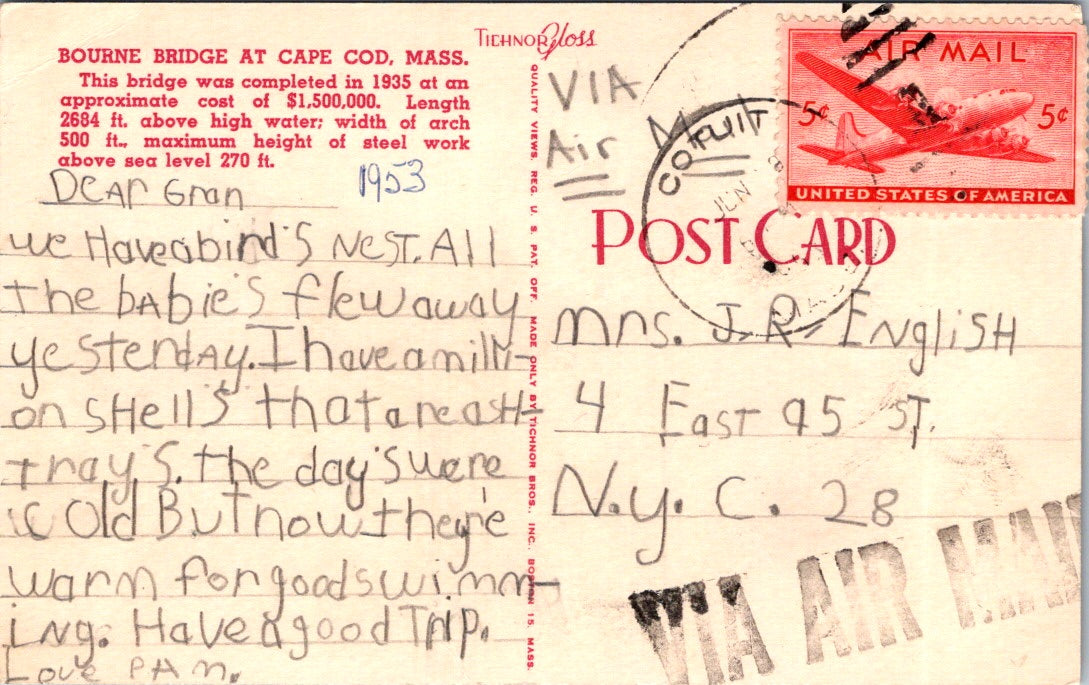 BOURNE BRIDGE AT CAPE COD, MASS.
This bridge was completed in 1935 at an
approximate cost of $1,500,000. Length
2684 ft. above high water; width of arch
500 ft., maximum height of steel work
above sea level 270 ft.
1953
Dear Gran
we Have a bird'S NeST. All
The bAbie'S flew away
yesterdAy. I have a milli-
on SHell'S that are aSH-
tray'S. the day'S were
cold But now they're
warm for good swimm-
iNg. Have a good Trip.
Love PAm.
TICHNOR Gloss
QUALITY VIEWS, REG. U. S. PAT. OFF. MADE ONLY BY TICHNOR BROS., INC. BOSTON 15, MASS.
VIA
Air Mail
COTUIT
JUN
MASS
AIR MAIL
5¢ 5¢
UNITED STATES OF AMERICA
POST CARD
mrs. J. R. ENgliSH
4 East 95 ST.
N.y. C. 28
VIA AIR MAIL